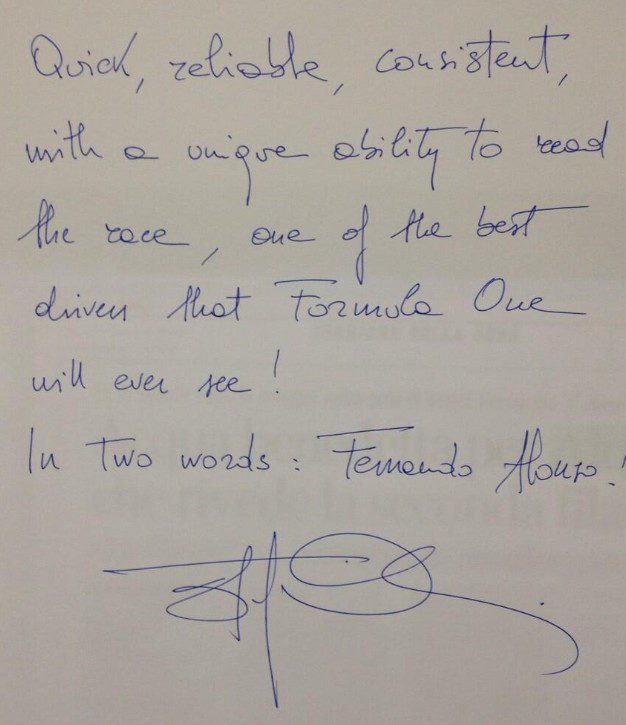 Quick, reliable, consistent,
with a unique ability to read
the race, one of the best
driver that Formula One
will ever see!
In two words: Fernando Alonso!